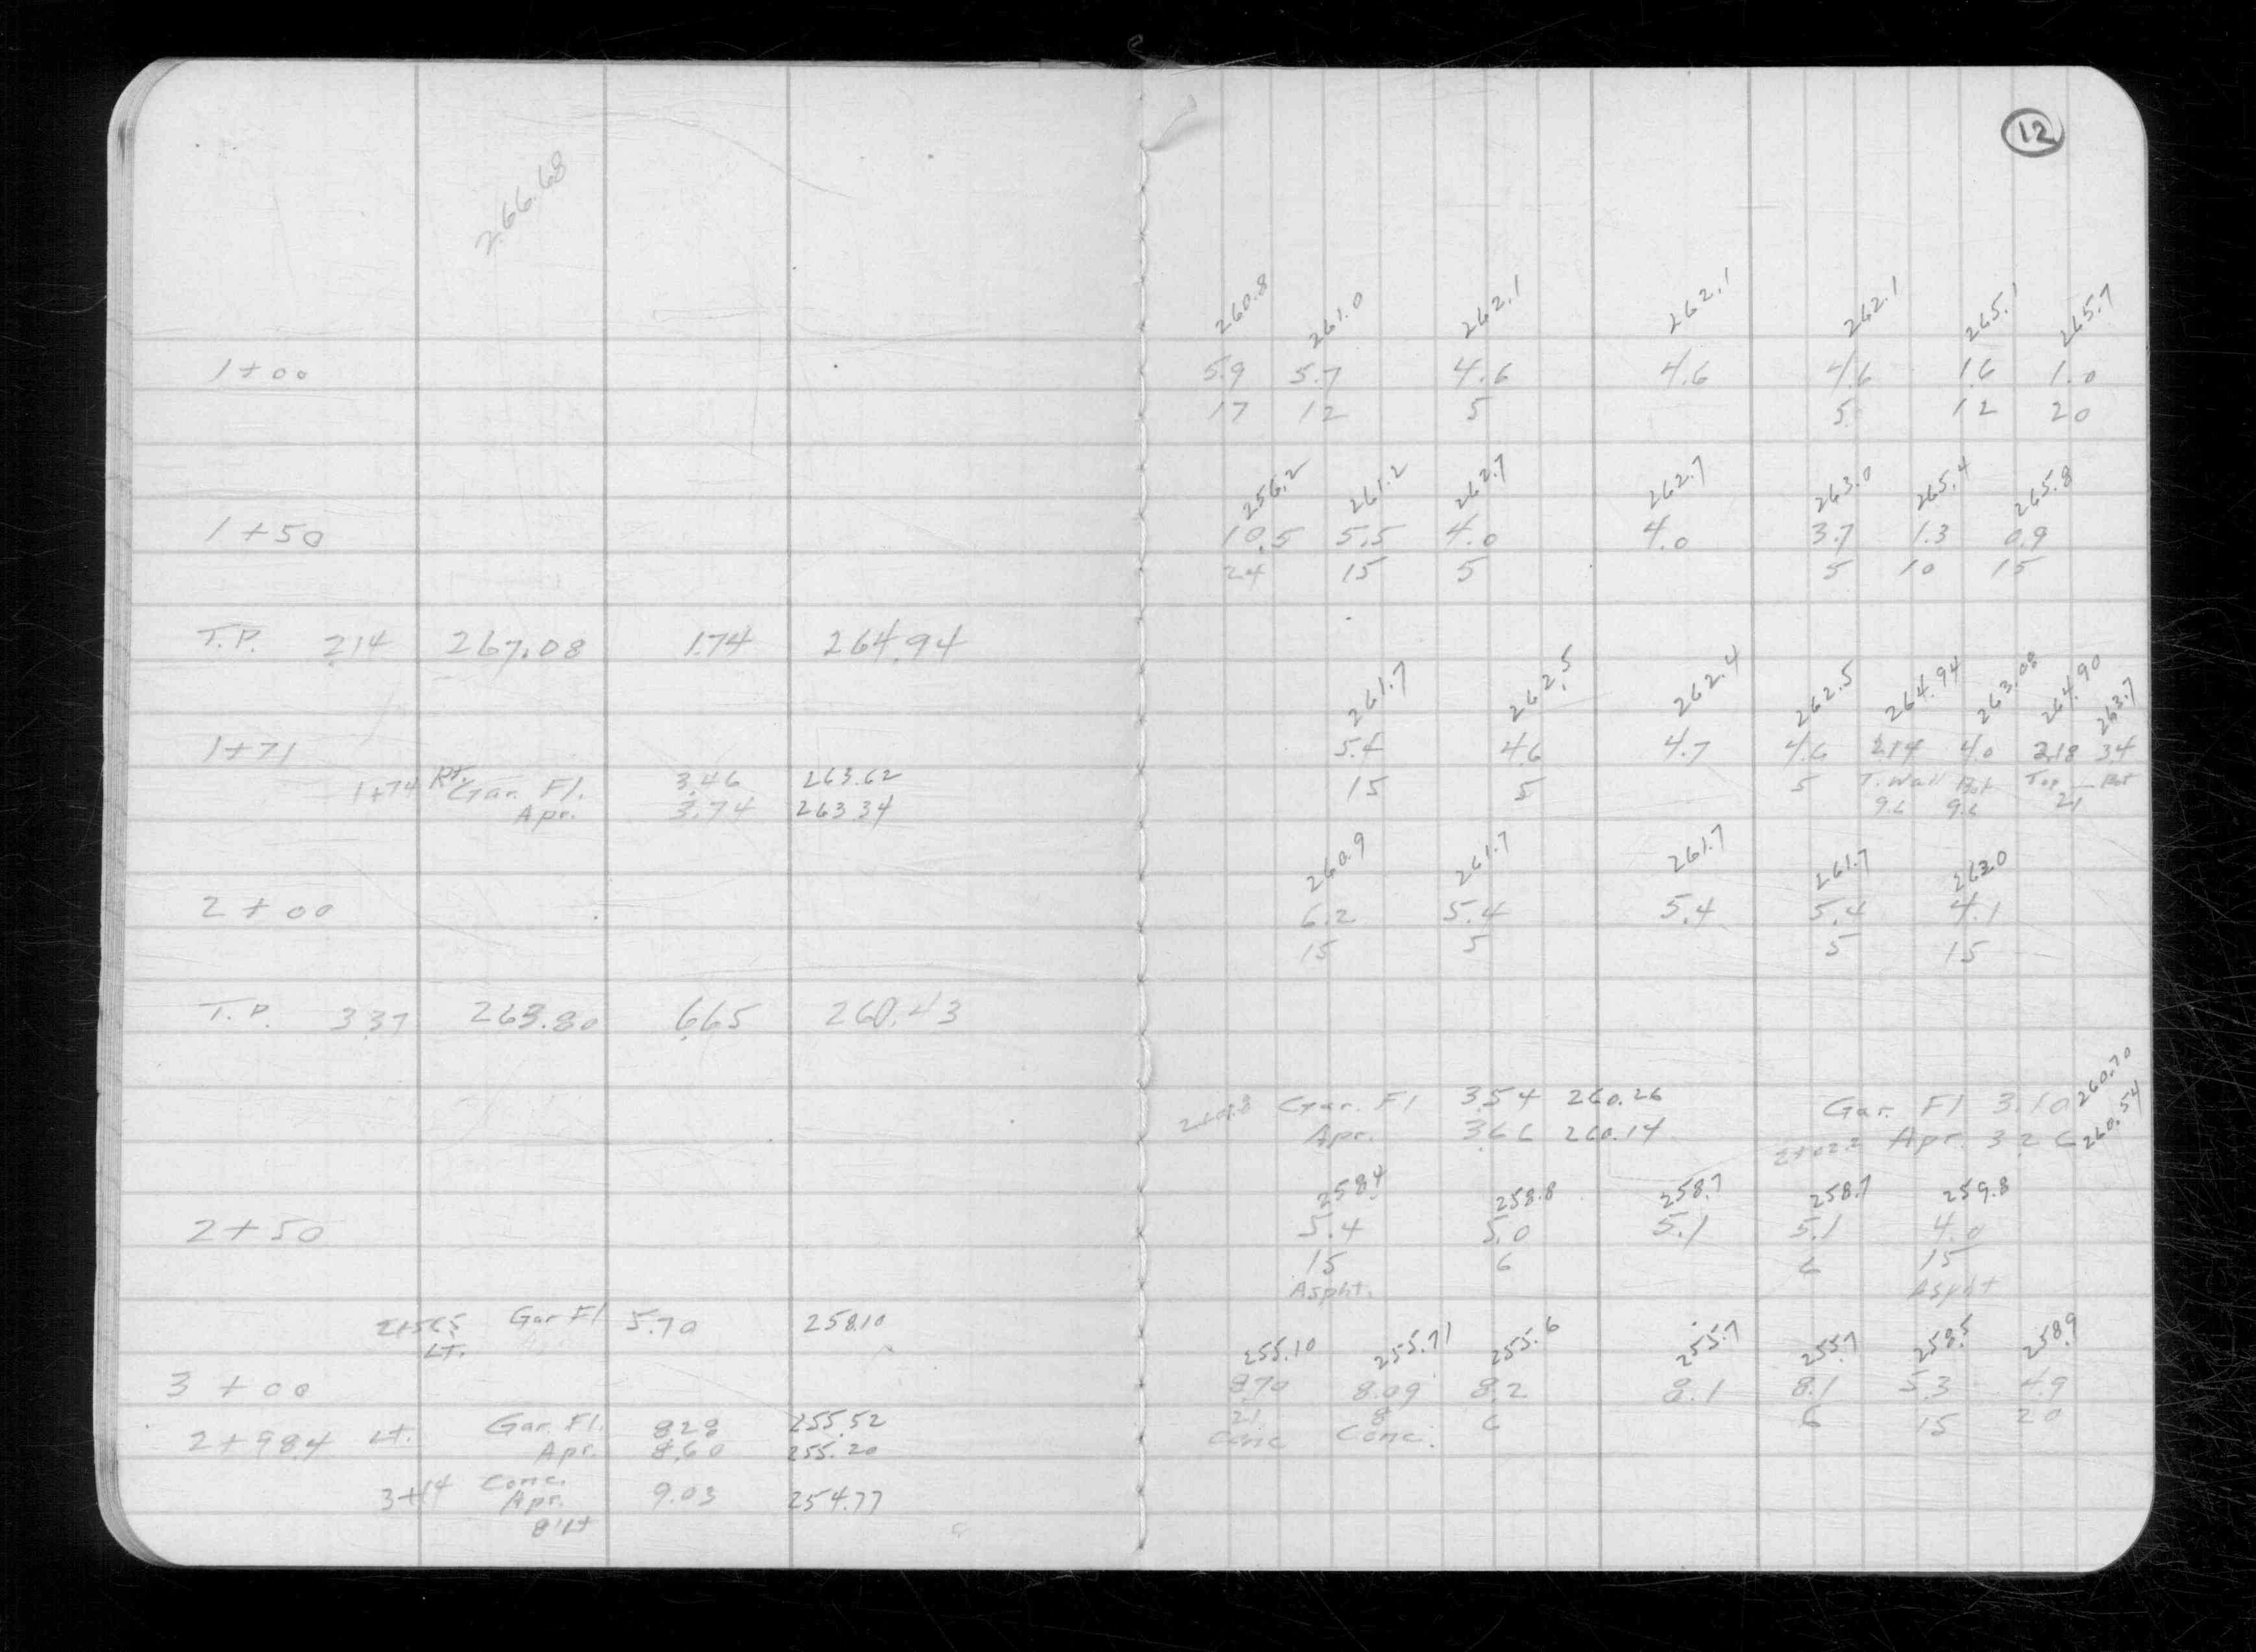 12
266.68
260.8 261.0 262.1 262.1 262.1 265.1 265.7
1+00 5.9 5.7 4.6 4.6 4.6 1.6 1.0
17 12 5 5 12 20
256.2 261.2 262.7 262.7 263.0 265.4 265.8
1+50 10.5 5.5 4.0 4.0 3.7 1.3 0.9
24 15 5 5 10 15
T.P. 2.14 267.08 1.74 264.94
261.7 262.5 262.4 262.5 264.94 263.08 264.90 263.7
1+71 5.4 4.6 4.7 4.6 2.14 4.0 2.18 3.4
1+74 Rt. Gar. Fl. 3.46 263.62 15 5 5 T. Wall Bot Top Bot
Apr. 3.74 263.34 9.6 9.6 21
260.9 261.7 261.7 261.7 263.0
2+00 6.2 5.4 5.4 5.4 4.1
15 5 5 15
T.P. 3.37 263.80 6.65 260.43
Gar. Fl 3.54 260.26 Gar. Fl 3.10 260.70
Apr. 3.66 260.14 2+02.2 Apr. 3.26 260.54
258.4 258.8 258.7 258.7 259.8
2+50 5.4 5.0 5.1 5.1 4.0
15 6 6 15
Aspht. Aspht
2+56.5 Gar Fl 5.70 258.10
LT.
255.10 255.71 255.6 255.7 255.7 258.5 258.9
3+00 8.70 8.09 8.2 8.1 8.1 5.3 4.9
21 8 6 6 15 20
Conc Conc.
2+98.4 Lt. Gar. Fl. 8.28 255.52
Apr. 8.60 255.20
3+14 Conc. Apr. 9.03 254.77
8' Lt